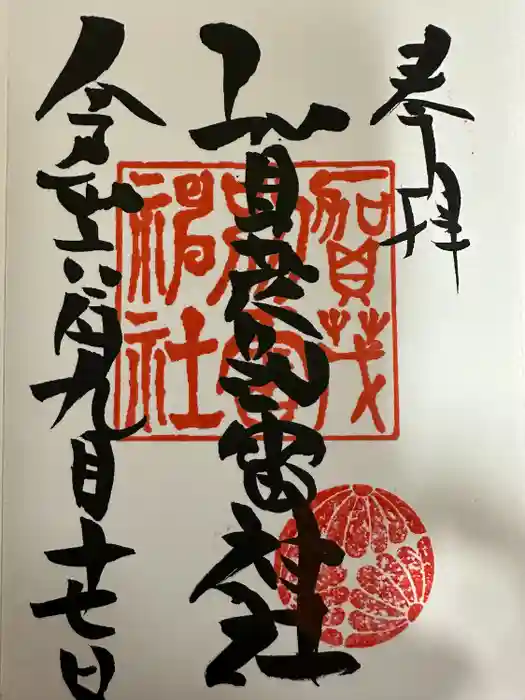 奉拝
賀茂別雷神社
賀茂別雷神社
令和六年九月十七日